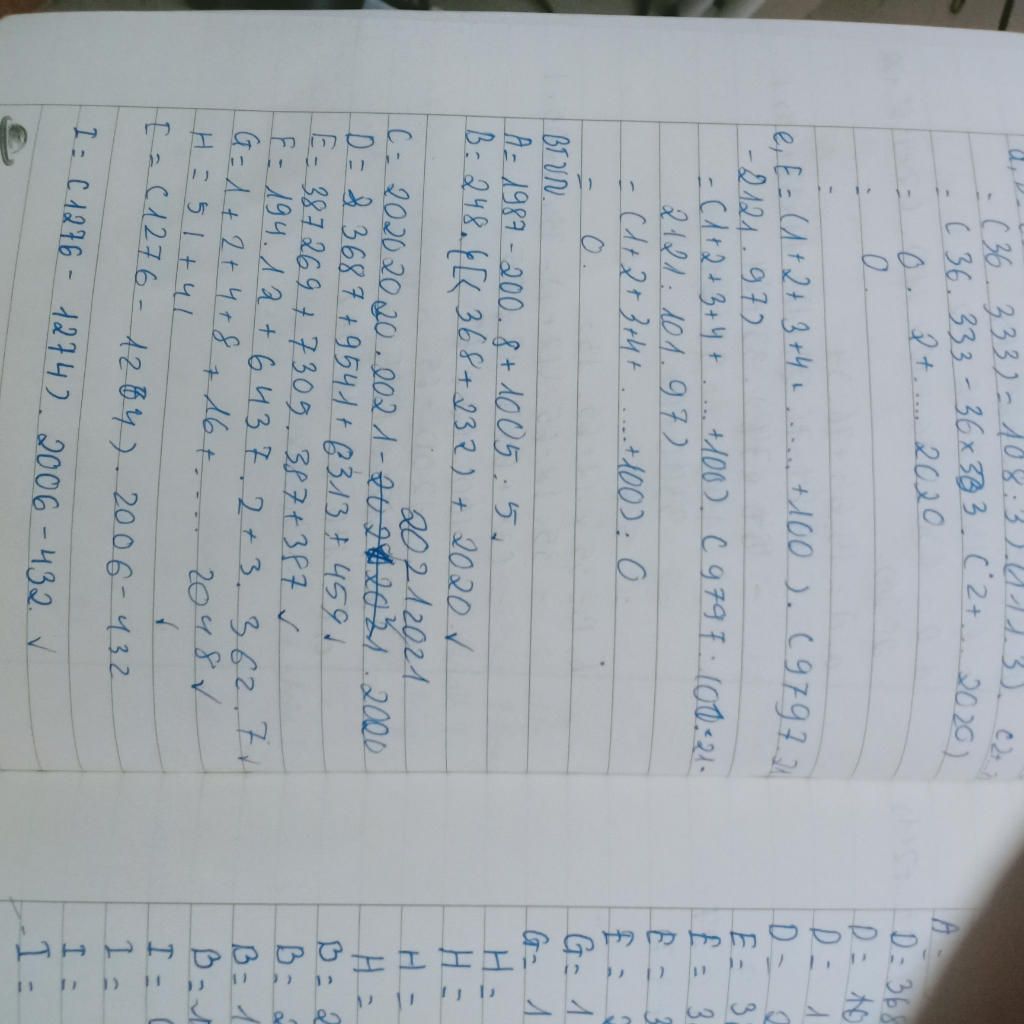 - (36. 333) - 108:3).(111.3). (2+
- (36. 333 - 36x333. (2+ ... 2020)
= 0. 2+ .... 2020
: 0.
:
e, E = (1+2+3+4+ ...... +100). (9797. 21
- 2121. 97)
= (1+2+3+4+ .... +100). (9797. 101.21.
2121. 101. 97)
= (1+2+3+4+ .....+100). 0
= 0.
BTVN.
A = 1987 - 200. 8 + 1005 : 5.
B = 248. {[(368 + 232) + 2020 √
20212021
C = 20202020. 2021 - . 2020
D = 3687 + 9541 + 6313 + 459 √
E = 387269 + 7309. 387 + 387 √
F = 194. 12 + 6. 437. 2 + 3. 362. 7 √
G = 1 + 2 + 4 + 8 + 16 + .... 2048 √
H = 51 + 41
I = (1276 - 1274). 2006 - 432
I = (1276 - 1274). 2006 - 432 √
A =
D = 368
D =
D = 1
D = 2
E = 3
E = 3
E = 3
E =
G = 1
G = 1
H =
H =
H =
H =
B = 2
B = 2
B = 1
B =
I = (
I =
I =
I =